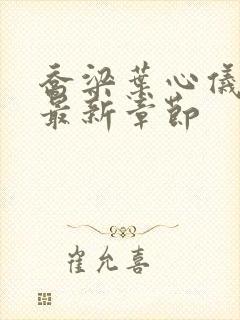 乔梁叶心仪
最新章节
崔允喜